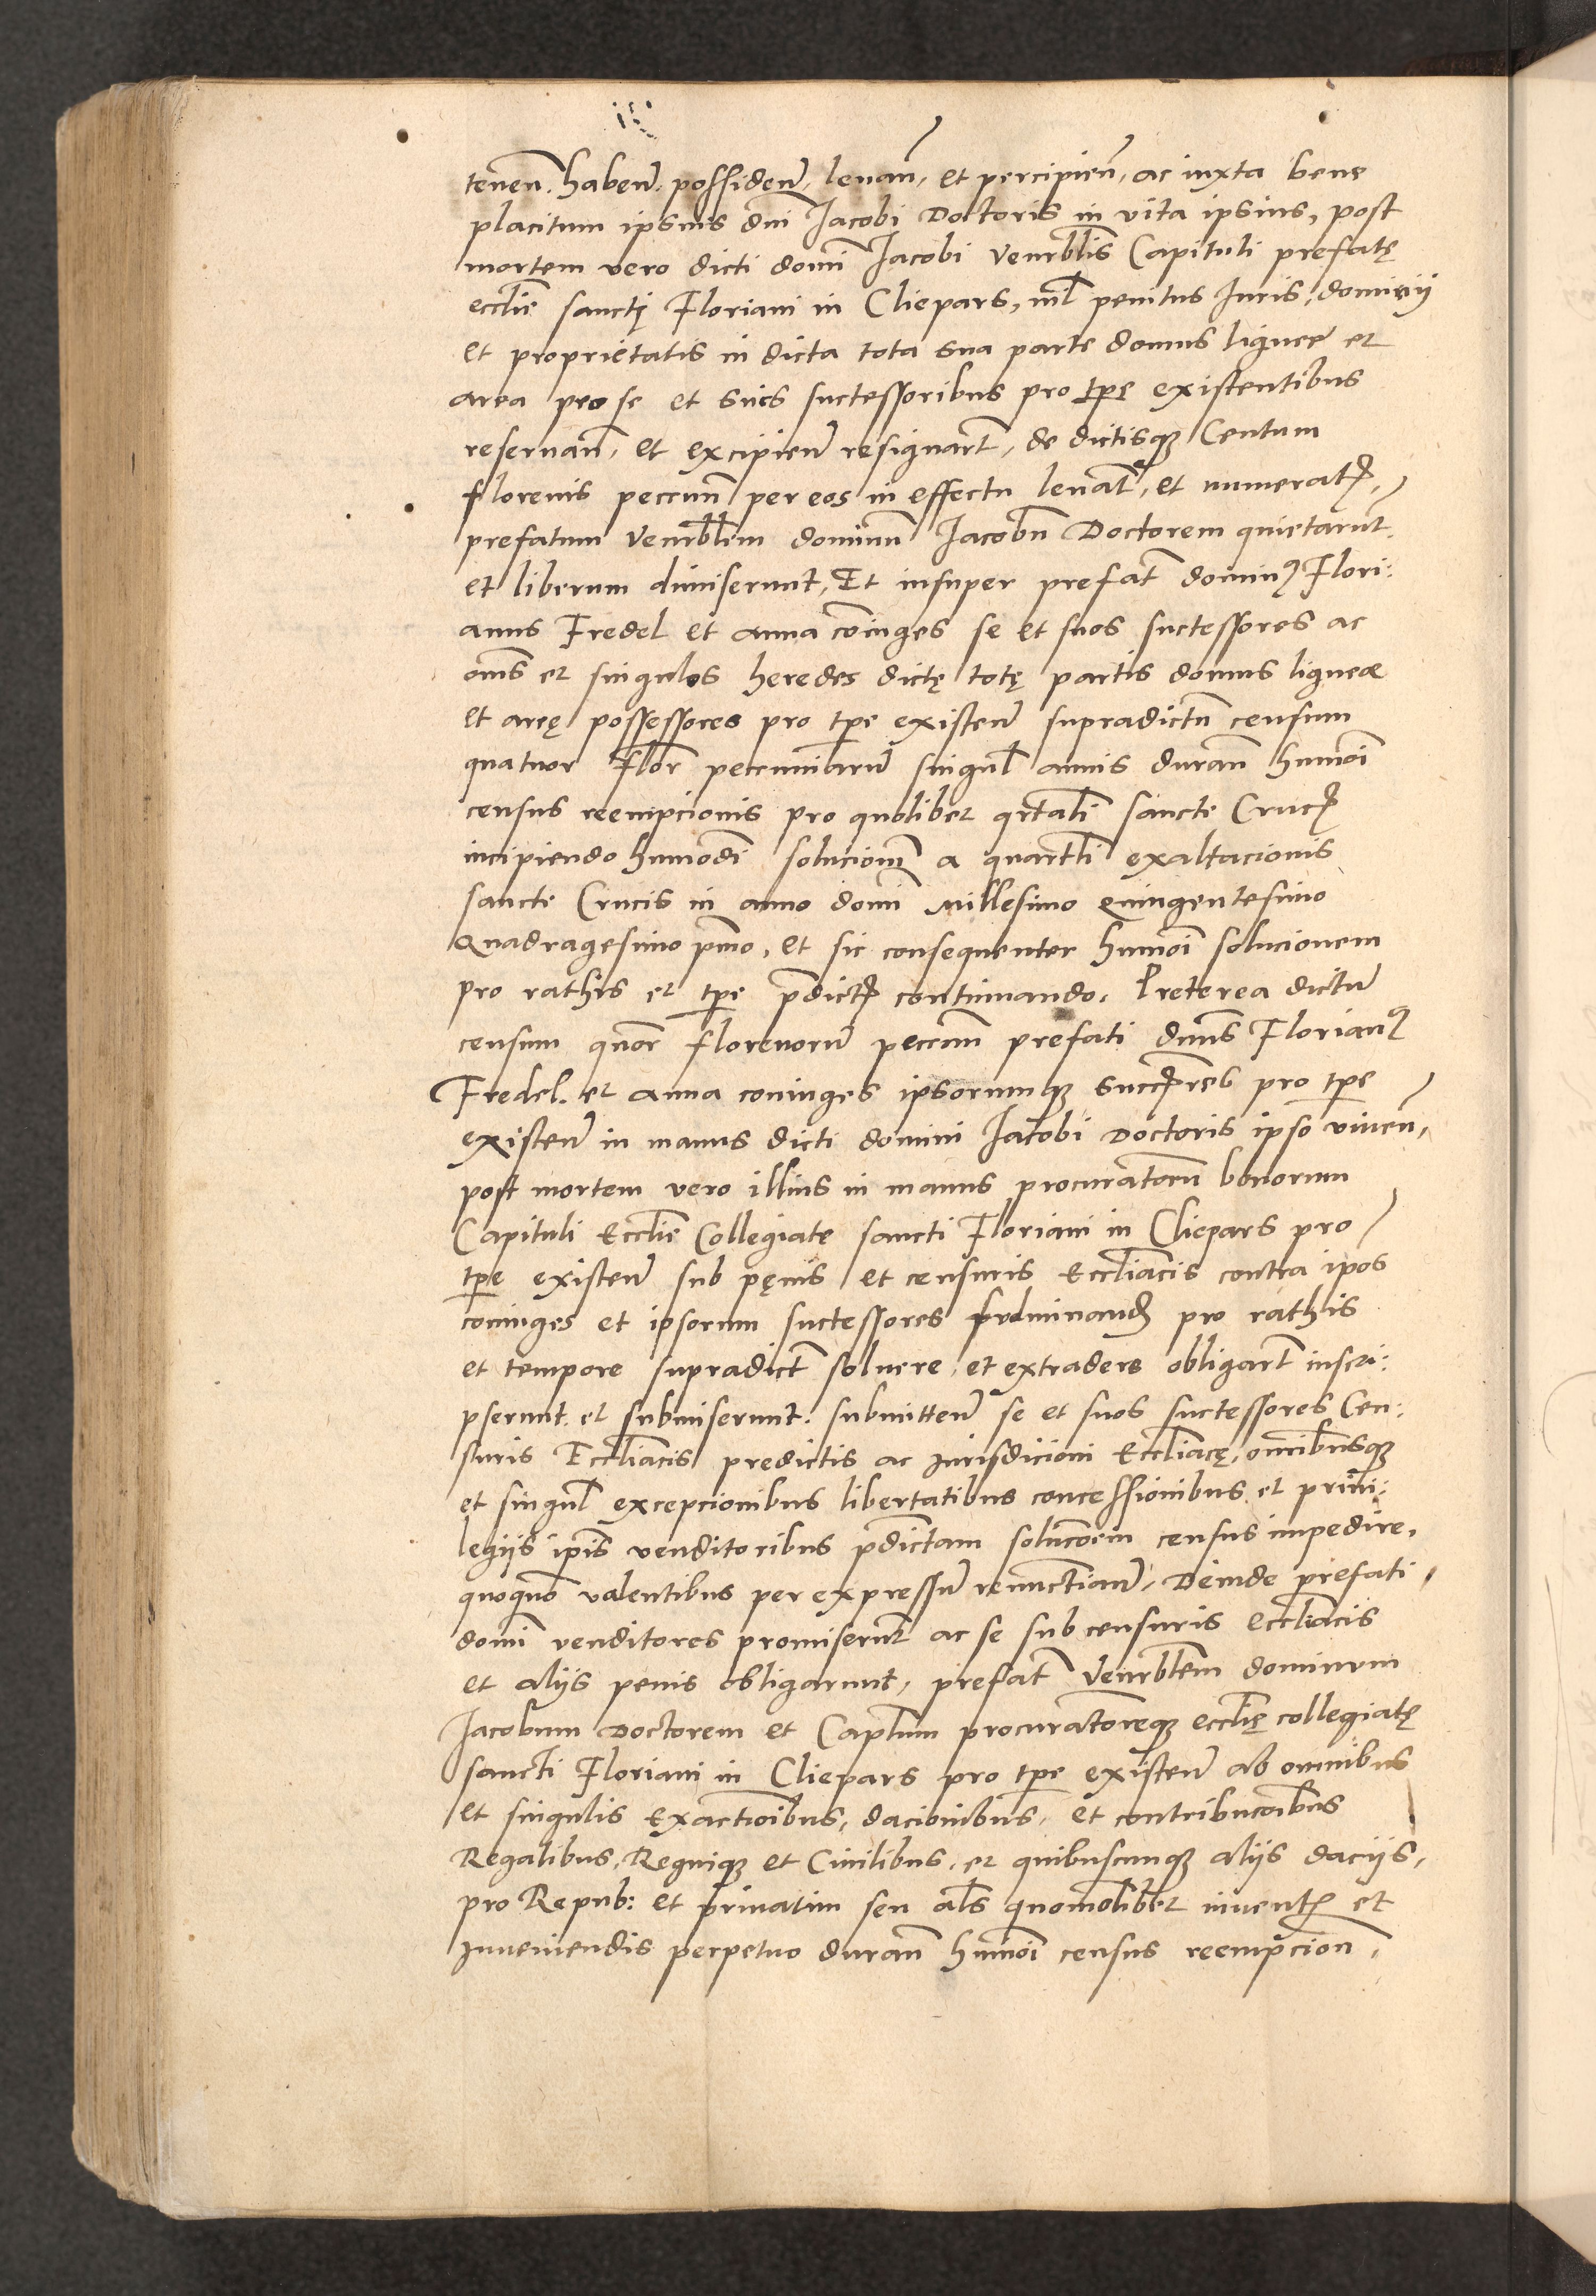 tenen. haben. possiden. leuan. et percipien. ac iuxta bene
placitum ipsius dni Jacobi Doctoris in vita ipsius, post
mortem vero dicti domi Jacobi Venrblis Capituli prefatę
ecclie sancti Floriani in Clepars, nil penitus Juris, dominij
et proprietatis in dicta tota sua parte domus lignee et
area pro se et suis successoribus pro tpe existentibus
reseruan. et excipien resignart, de dictisque Centum
florenis peccun per eos in effectu leuat, et numerat,
prefatum Venrblem dominum Jacobu Doctorem quietarunt
et liberum dimiserunt, Et insuper prefat dominus Flori:
anus Fredel et anna coniuges se et suos successores ac
oms et singulos heredes dictę totę partis domus ligneæ
et areę possessores pro tpe existen supradictu censum
quatuor flor pecuniaru singul annis duran humoi
census reempcionis pro quolibet qrtali sancte Crucis
incipiendo humodi solucionem a quartli exaltacionis
sancte Crucis in anno domi Millesimo Quingentesimo
Quadragesimo pmo, et sic consequenter humoi solucionem
pro rathis et tpe pdictis continuando. Preterea dictu
censum quor florenoru peccun prefati dnus Florianus
Fredel. et anna coniuges ipsorumque succores pro tpe
existen in manus dicti domini Jacobi Doctoris ipso viuen,
post mortem vero illius in manus procuratorum bonorum
Capituli Ecclie Collegiate sancti Floriani in Clepars pro
tpe existen sub pęnis et censuris Eccliacis contra ipos
coniuges et ipsorum successores fulminand pro rathis
et tempore supradict soluere et extradere obligart inscri:
pserunt et submiserunt. submitten se et suos successores Cen:
suris Eccliacis predictis ac Jurisdicioni Eccliacę, omnibusque
et singul excepcionibus libertatibus concessionibus et priui:
legijs ipis venditoribus pdictam solucoem census impedire,
quoquo valentibus per expressum renunctian. Deinde prefati
domi venditores promiserunt ac se sub censuris Eccliacis
et alijs penis obligarunt, prefat Venrblem dominum
Jacobum Doctorem et Captlum procuratoresque ecclię collegiatę
sancti Floriani in Clepars pro tpe existen ab omnibus
et singulis exactioibus, dacionibus, et contribucoibus
Regalibus, Regnique et Ciuilibus, et quibuscunque alijs dacijs,
pro Repub: et priuatim seu als quomolibet inuentis et
Inueniendis perpetuo duran humoi census reempcion,